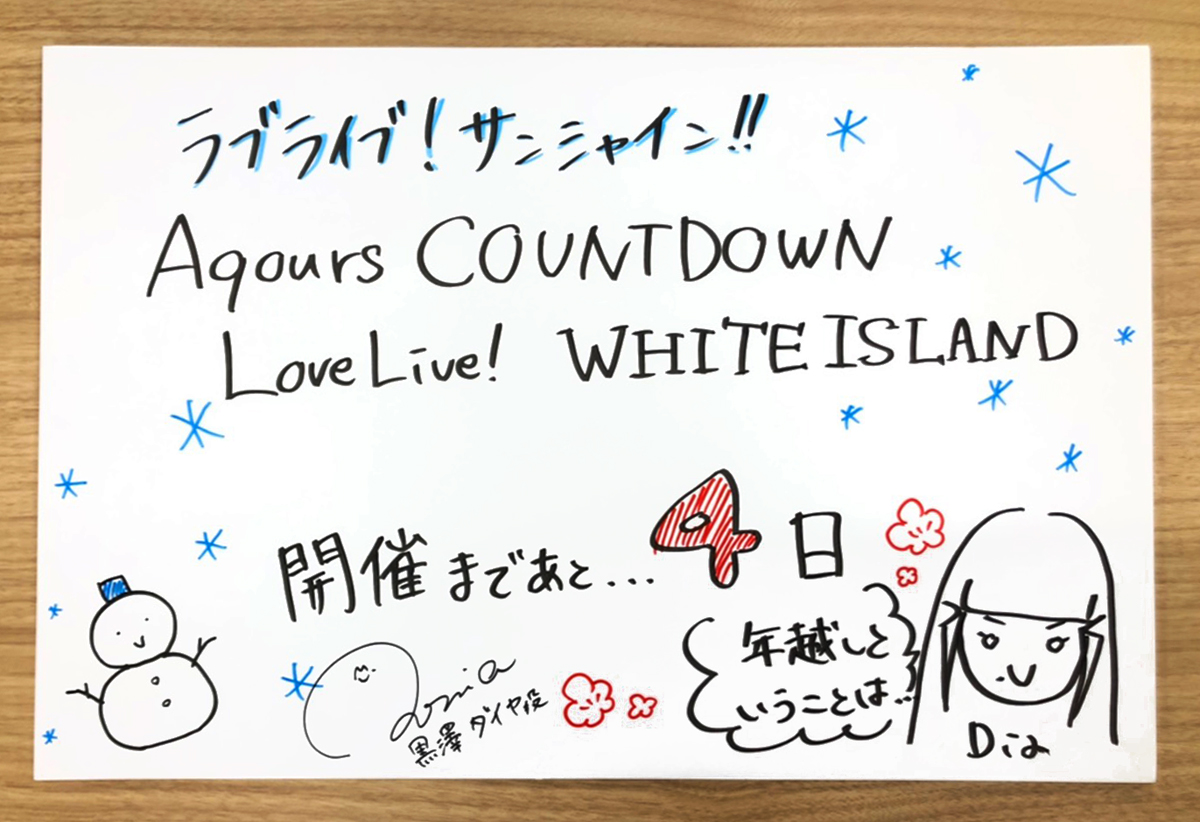 ラブライブ！サンシャイン!!
Aqours COUNTDOWN
LoveLive! WHITE ISLAND
開催まであと...4日
年越しと
いうことは...
黒澤ダイヤ役
Dia